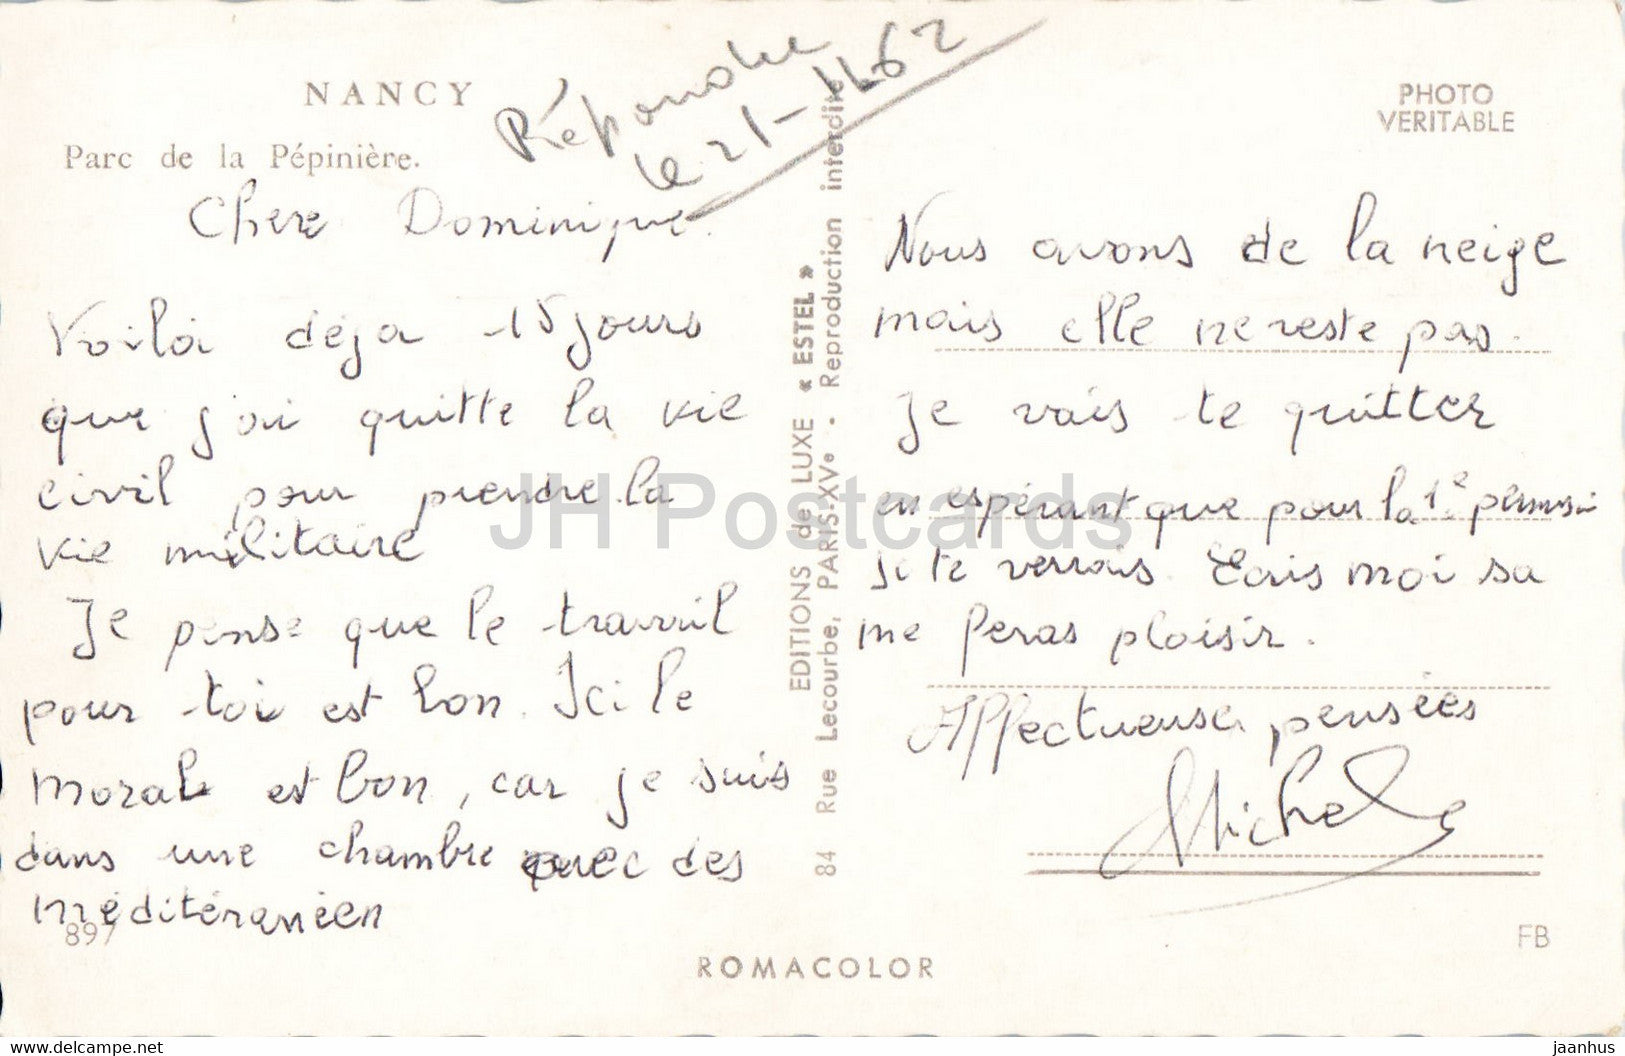 NANCY
Parc de la Pépinière.
Répondre
le 21-11-62
PHOTO
VERITABLE
Chere Dominique.
Voilà déja 15 jours
que j'ai quitte la vie
civil pour prendre la
vie militaire
Je pense que le travail
pour toi est bon. Ici le
moral est bon, car je suis
dans une chambre avec des
méditéranéen
897
EDITIONS de LUXE « ESTEL »
84 Rue Lecourbe, PARIS-XVe. Reproduction interdite
Nous avons de la neige
mais elle ne reste pas.
Je vais te quitter
en espérant que pour la 1e permis
je te verrais. Ecris moi sa
me feras plaisir.
Affectueuses pensées
Michel
FB
ROMACOLOR
JH Postcards
www.delcampe.net
jaanhus